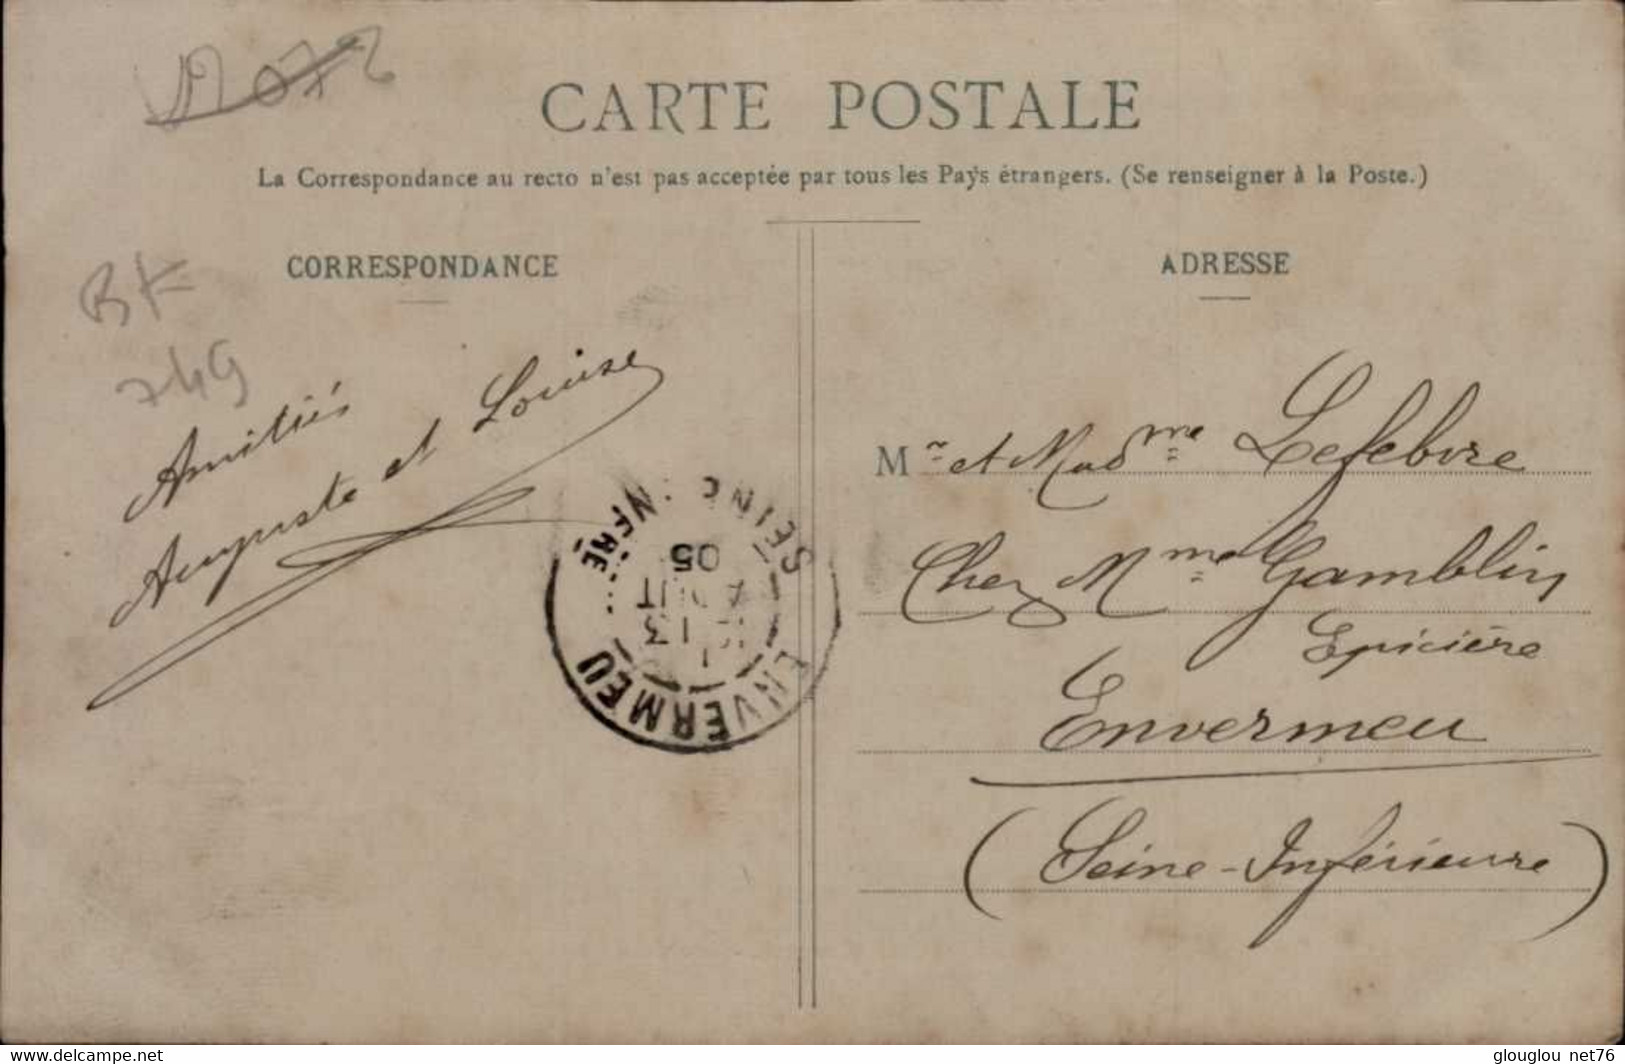 CARTE POSTALE
La Correspondance au recto n'est pas acceptée par tous les Pays étrangers. (Se renseigner à la Poste.)
CORRESPONDANCE
ADRESSE
BK
749
Amitiés
Auguste et Louise
Mr et Madme Lefebvre
Chez Mme Gamblin
Epicière
Envermeu
(Seine-Inférieure)
ENVERMEU
SEINE INFRE
13
AOUT
05
www.delcampe.net
glouglou_net76